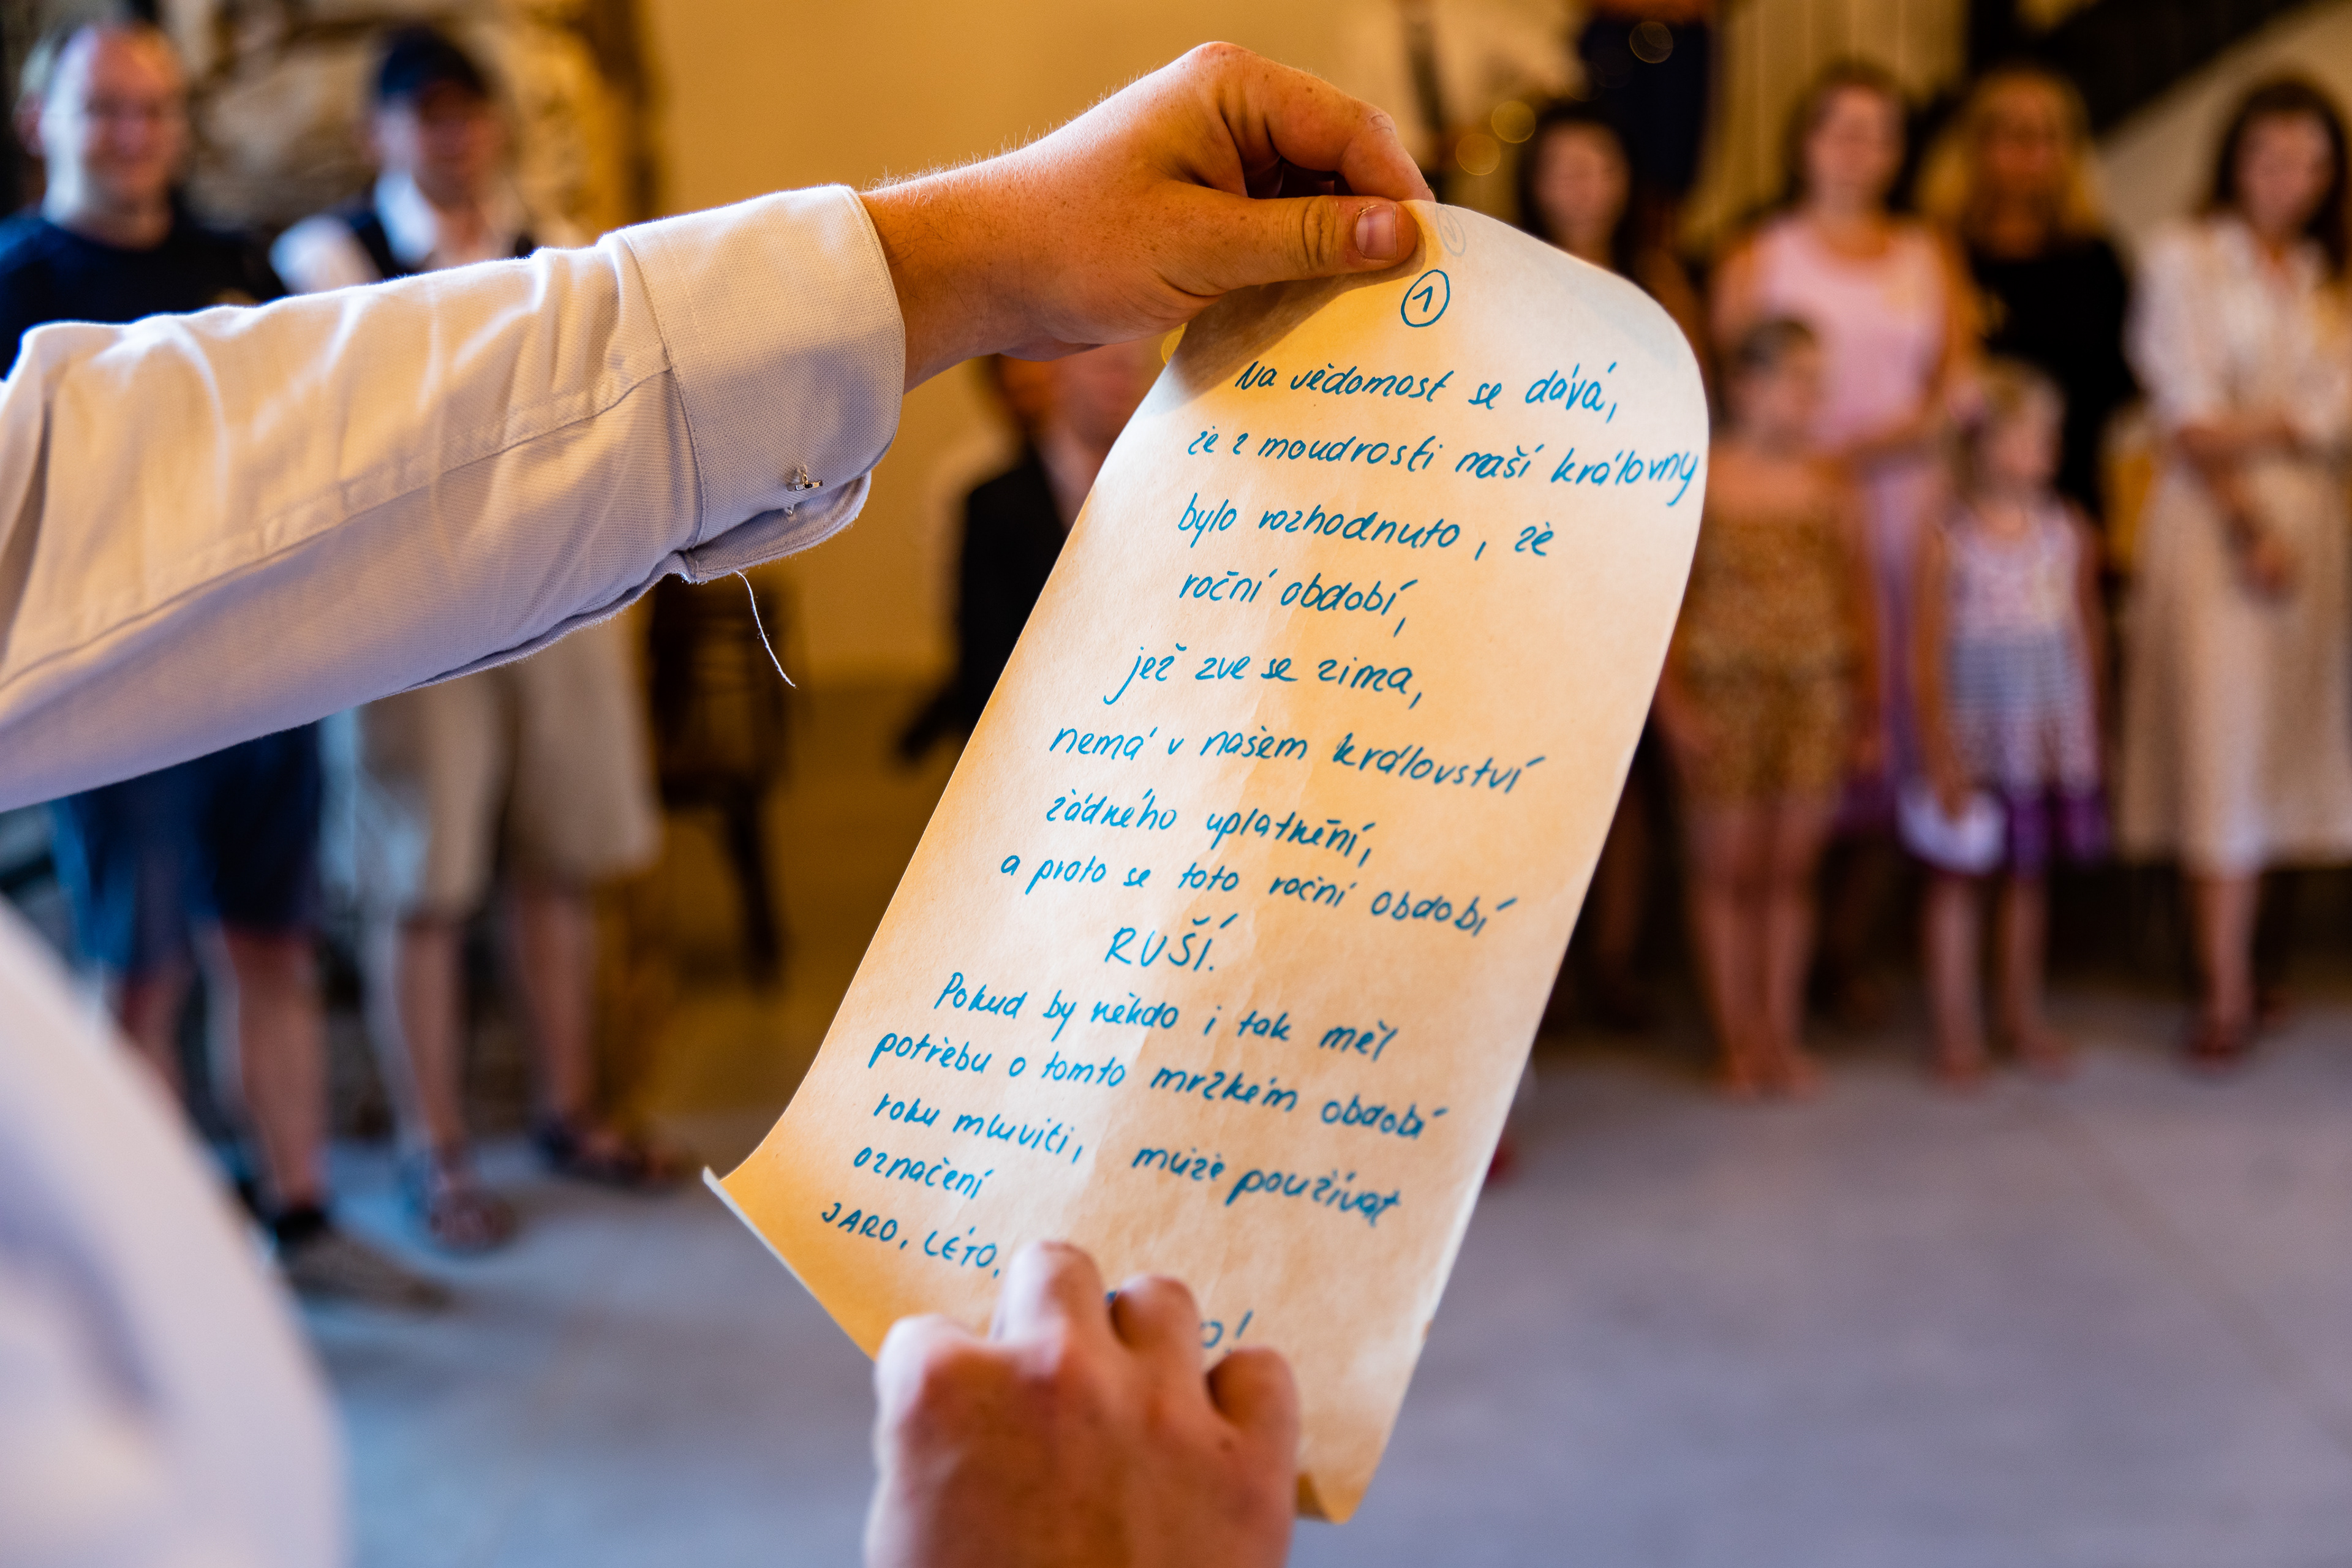 1
Na vědomost se dává,
že z moudrosti naší královny
bylo rozhodnuto, že
roční období,
jež zve se zima,
nemá v našem království
žádného uplatnění,
a proto se toto roční období
RUŠÍ.
Pokud by někdo i tak měl
potřebu o tomto mrzkém období
roku mluviti, může používat
označení
JARO, LÉTO,